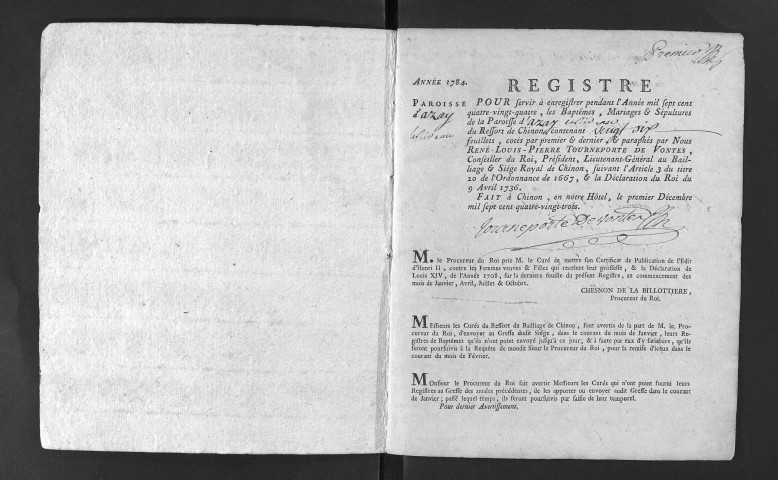 Premier
ANNÉE 1784.
REGISTRE
PAROISSE
d'azay
POUR servir à enregistrer pendant l'Année mil sept cent
quatre-vingt-quatre, les Baptêmes, Mariages & Sépultures
de la Paroisse d'azay
du Ressort de Chinon, contenant Vingt six
feuillets, cotés par premier & dernier & paraphés par Nous
RENÉ-LOUIS-PIERRE TOURNEPORTE DE VONTES,
Conseiller du Roi, Président, Lieutenant-Général au Bail-
liage & Siége Royal de Chinon, suivant l'Article 3 du titre
20 de l'Ordonnance de 1667, & la Déclaration du Roi du
9 Avril 1736.
FAIT à Chinon, en notre Hôtel, le premier Décembre
mil sept cent quatre-vingt-trois.
Tourneporte De Vontes
M. le Procureur du Roi prie M. le Curé de mettre son Certificat de Publication de l'Edit
d'Henri II, contre les Femmes veuves & Filles qui recelent leur grossesse, & la Déclaration de
Louis XIV, de l'Année 1708, sur la derniere feuille du présent Registre, au commencement des
mois de Janvier, Avril, Juillet & Octobre.
CHESNON DE LA BILLOTTIERE,
Procureur du Roi.
MEssieurs les Curés du Ressort du Bailliage de Chinon, sont avertis de la part de M. le Pro-
cureur du Roi, d'envoyer au Greffe dudit Siége, dans le courant du mois de Janvier, leurs Re-
gistres de Baptêmes qu'ils n'ont point envoyé jusqu'à ce jour; & à faute par eux d'y satisfaire, qu'ils
seront poursuivis à la Requête de mondit Sieur le Procureur du Roi, pour la remise d'iceux dans le
courant du mois de Février.
MOnsieur le Procureur du Roi fait avertir Messieurs les Curés qui n'ont point fourni leurs
Registres au Greffe des années précédentes, de les apporter ou envoyer audit Greffe dans le courant
de Janvier; passé lequel temps, ils seront poursuivis par saisie de leur temporel.
Pour dernier Avertissement.